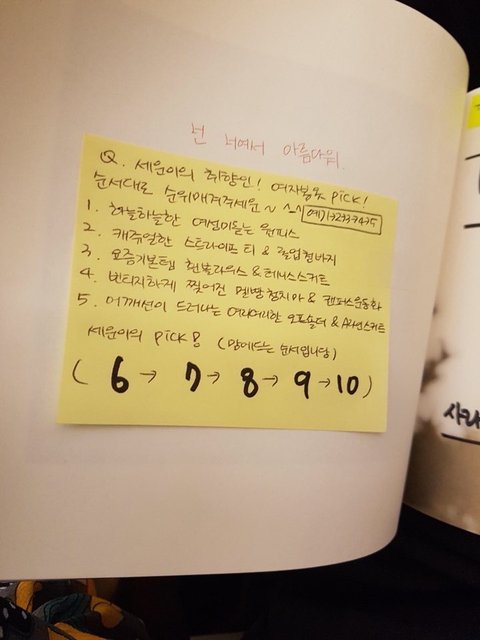 넌 너여서 아름다워.
Q. 세운이의 취향인! 여자봄옷 pick!
순서대로 순위매겨주세운~ ^-^ 예)1→2→3→4→5
1. 하늘하늘한 여성미돋는 원피스
2. 캐주얼한 스트라이프 티 & 롤업청바지
3. 요즘기본템 흰블라우스 & 테니스스커트
4. 빈티지하게 찢어진 멜빵청치마 & 캔퍼스운동화
5. 어깨선이 드러나는 여리여리한 오프숄더 & A라인스커트
세운이의 pick! (맘에드는 순서입니당)
( 6 → 7 → 8 → 9 → 10 )